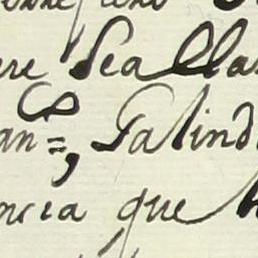 ere se alla
an=, Galind
ncia que